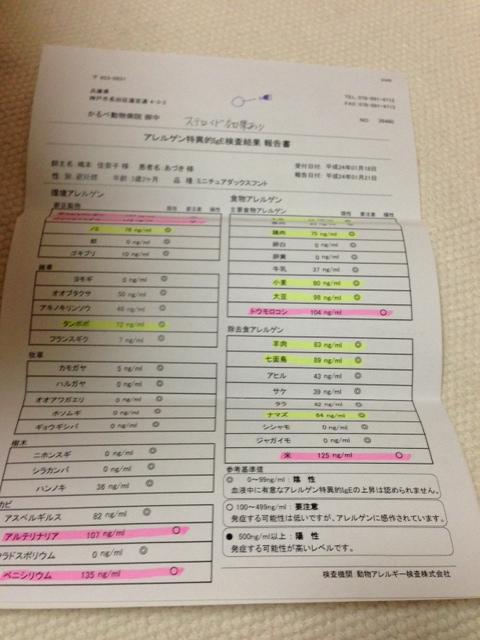 兵庫県
かるべ動物病院 御中
ステロイド効果あり
アレルゲン特異的IgE検査結果 報告書
受付日付: 平成24年01月18日
報告日付: 平成24年01月21日
品 種: ミニチュアダックスフント
環境アレルゲン
陰性 要注意 陽性
ノミ 78 ng/ml ◎
蚊 0 ng/ml ◎
ゴキブリ 10 ng/ml ◎
雑草
ヨモギ 0 ng/ml ◎
オオブタクサ 50 ng/ml ◎
アキノキリンソウ 46 ng/ml ◎
タンポポ 72 ng/ml ◎
フランスギク 7 ng/ml ◎
牧草
カモガヤ 5 ng/ml ◎
ハルガヤ 0 ng/ml ◎
オオアワガエリ 0 ng/ml ◎
ホソムギ 0 ng/ml ◎
ギョウギシバ 0 ng/ml ◎
樹木
ニホンスギ 0 ng/ml ◎
シラカンバ 0 ng/ml ◎
ハンノキ 36 ng/ml ◎
カビ
アスペルギルス 82 ng/ml ◎
アルテリナリア 107 ng/ml ○
ラドスポリウム 0 ng/ml ◎
ペニシリウム 135 ng/ml ○
食物アレルゲン
主要食物アレルゲン 陰性 要注意 陽性
鶏肉 75 ng/ml ◎
卵白 0 ng/ml ◎
卵黄 0 ng/ml ◎
牛乳 37 ng/ml ◎
小麦 80 ng/ml ◎
大豆 98 ng/ml ◎
トウモロコシ 104 ng/ml ○
除去食アレルゲン
羊肉 83 ng/ml ◎
七面鳥 89 ng/ml ◎
アヒル 43 ng/ml ◎
サケ 39 ng/ml ◎
タラ 42 ng/ml ◎
ナマズ 64 ng/ml ◎
シシャモ 0 ng/ml ◎
ジャガイモ 0 ng/ml ◎
米 125 ng/ml ○
参考基準値
◎ 0～99ng/ml: 陰 性
血液中に有意なアレルゲン特異的IgEの上昇は認められません。
○ 100～499ng/ml: 要注意
発症する可能性は低いですが、アレルゲンに感作されています。
● 500ng/ml以上: 陽 性
発症する可能性が高いレベルです。
検査機関 動物アレルギー検査株式会社